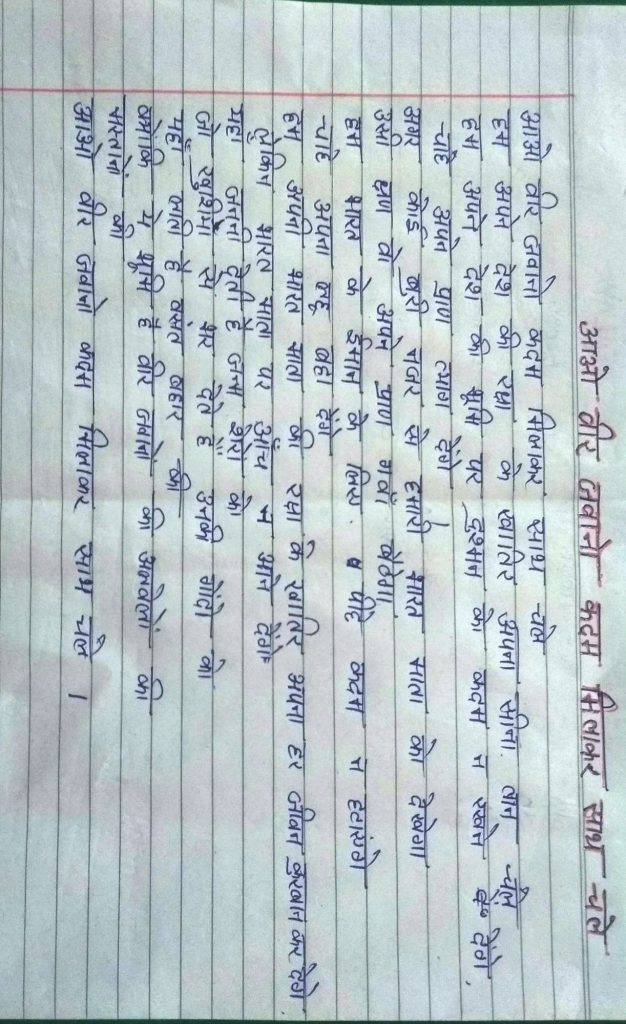 आओ वीर जवानो कदम मिलाकर साथ चले
आओ वीर जवानो कदम मिलाकर साथ चले
हम अपने देश की रक्षा के खातिर अपना सीना तान चले
हम अपने देश की भूमि पर दुश्मन को कदम न रखने देंगे
चाहे अपने प्राण त्याग देंगे
अगर कोई बुरी नजर से हमारी भारत माता को देखेगा
उसी क्षण वो अपने प्राण गवाँ बैठेगा
हम भारत के ईमान के लिए पीछे कदम न हटाएंगे
चाहे अपना लहू बहा देंगे
हम अपनी भारत माता की रक्षा के खातिर अपना हर जीवन कुरबान कर देंगे
लेकिन भारत माता पर आँच न आने देंगे
यहाँ जननी देती है जन्म शेरो को
जो खुशियों से भर देते हैं उनकी गोदी को
यहाँ जाति है वसंत बहार की
क्योंकि ये भूमि है वीर जवानो की अलबेलों की
मस्तानों की
आओ वीर जवानो कदम मिलाकर साथ चले ।